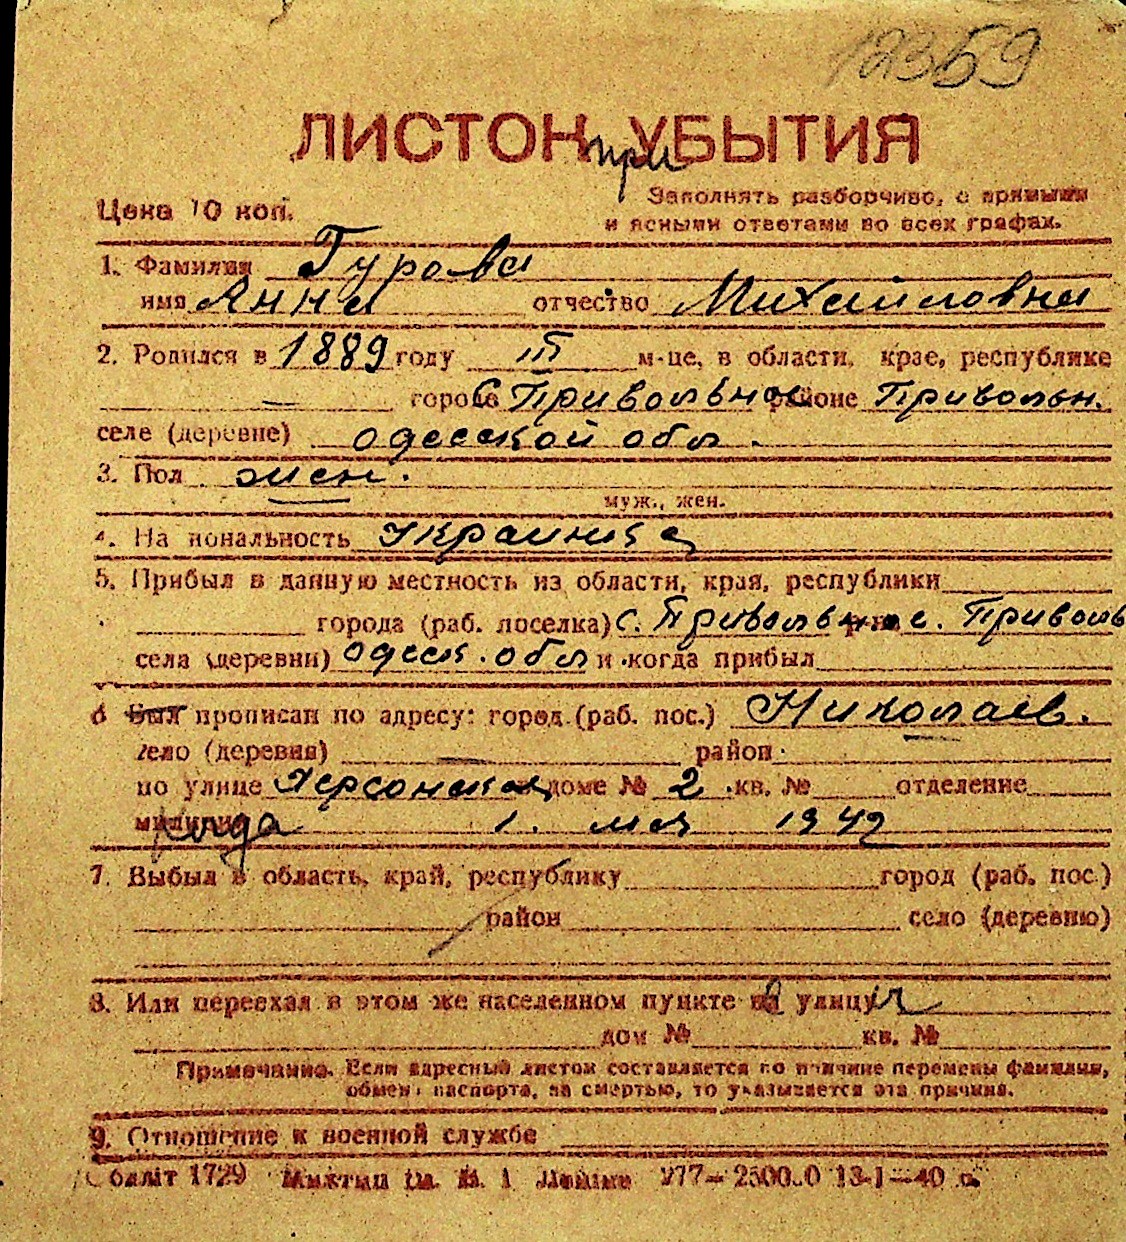 12359
ЛИСТОК при УБЫТИЯ
Цена 10 коп.
Заполнять разборчиво, с прямыми
и ясными ответами во всех графах.
1. Фамилия Гурова
имя Анна отчество Михайловна
2. Родился в 1889 году III м-це, в области, крае, республике
— городе с Привольное районе Привольн.
селе (деревне) одесской обл.
3. Пол жен.
муж., жен.
4. Национальность Украинка
5. Прибыл в данную местность из области, края, республики
города (раб. поселка) с. Привольное. Приволь
села (деревни) одесск. обл и когда прибыл
6 Был прописан по адресу: город (раб. пос.) Николаев.
село (деревня) — район
по улице Херсонская доме № 2 кв. № отделение
милиции 1. мая 1942
7. Выбыл в область, край, республику город (раб. пос.)
район село (деревню)
8. Или переехал в этом же населенном пункте на улицу
дом № кв. №
Примечание. Если адресный листок составляется по причине перемены фамилии,
обмена паспорта, за смертью, то указывается эта причина.
9. Отношение к военной службе
1729 277— 13-1—40